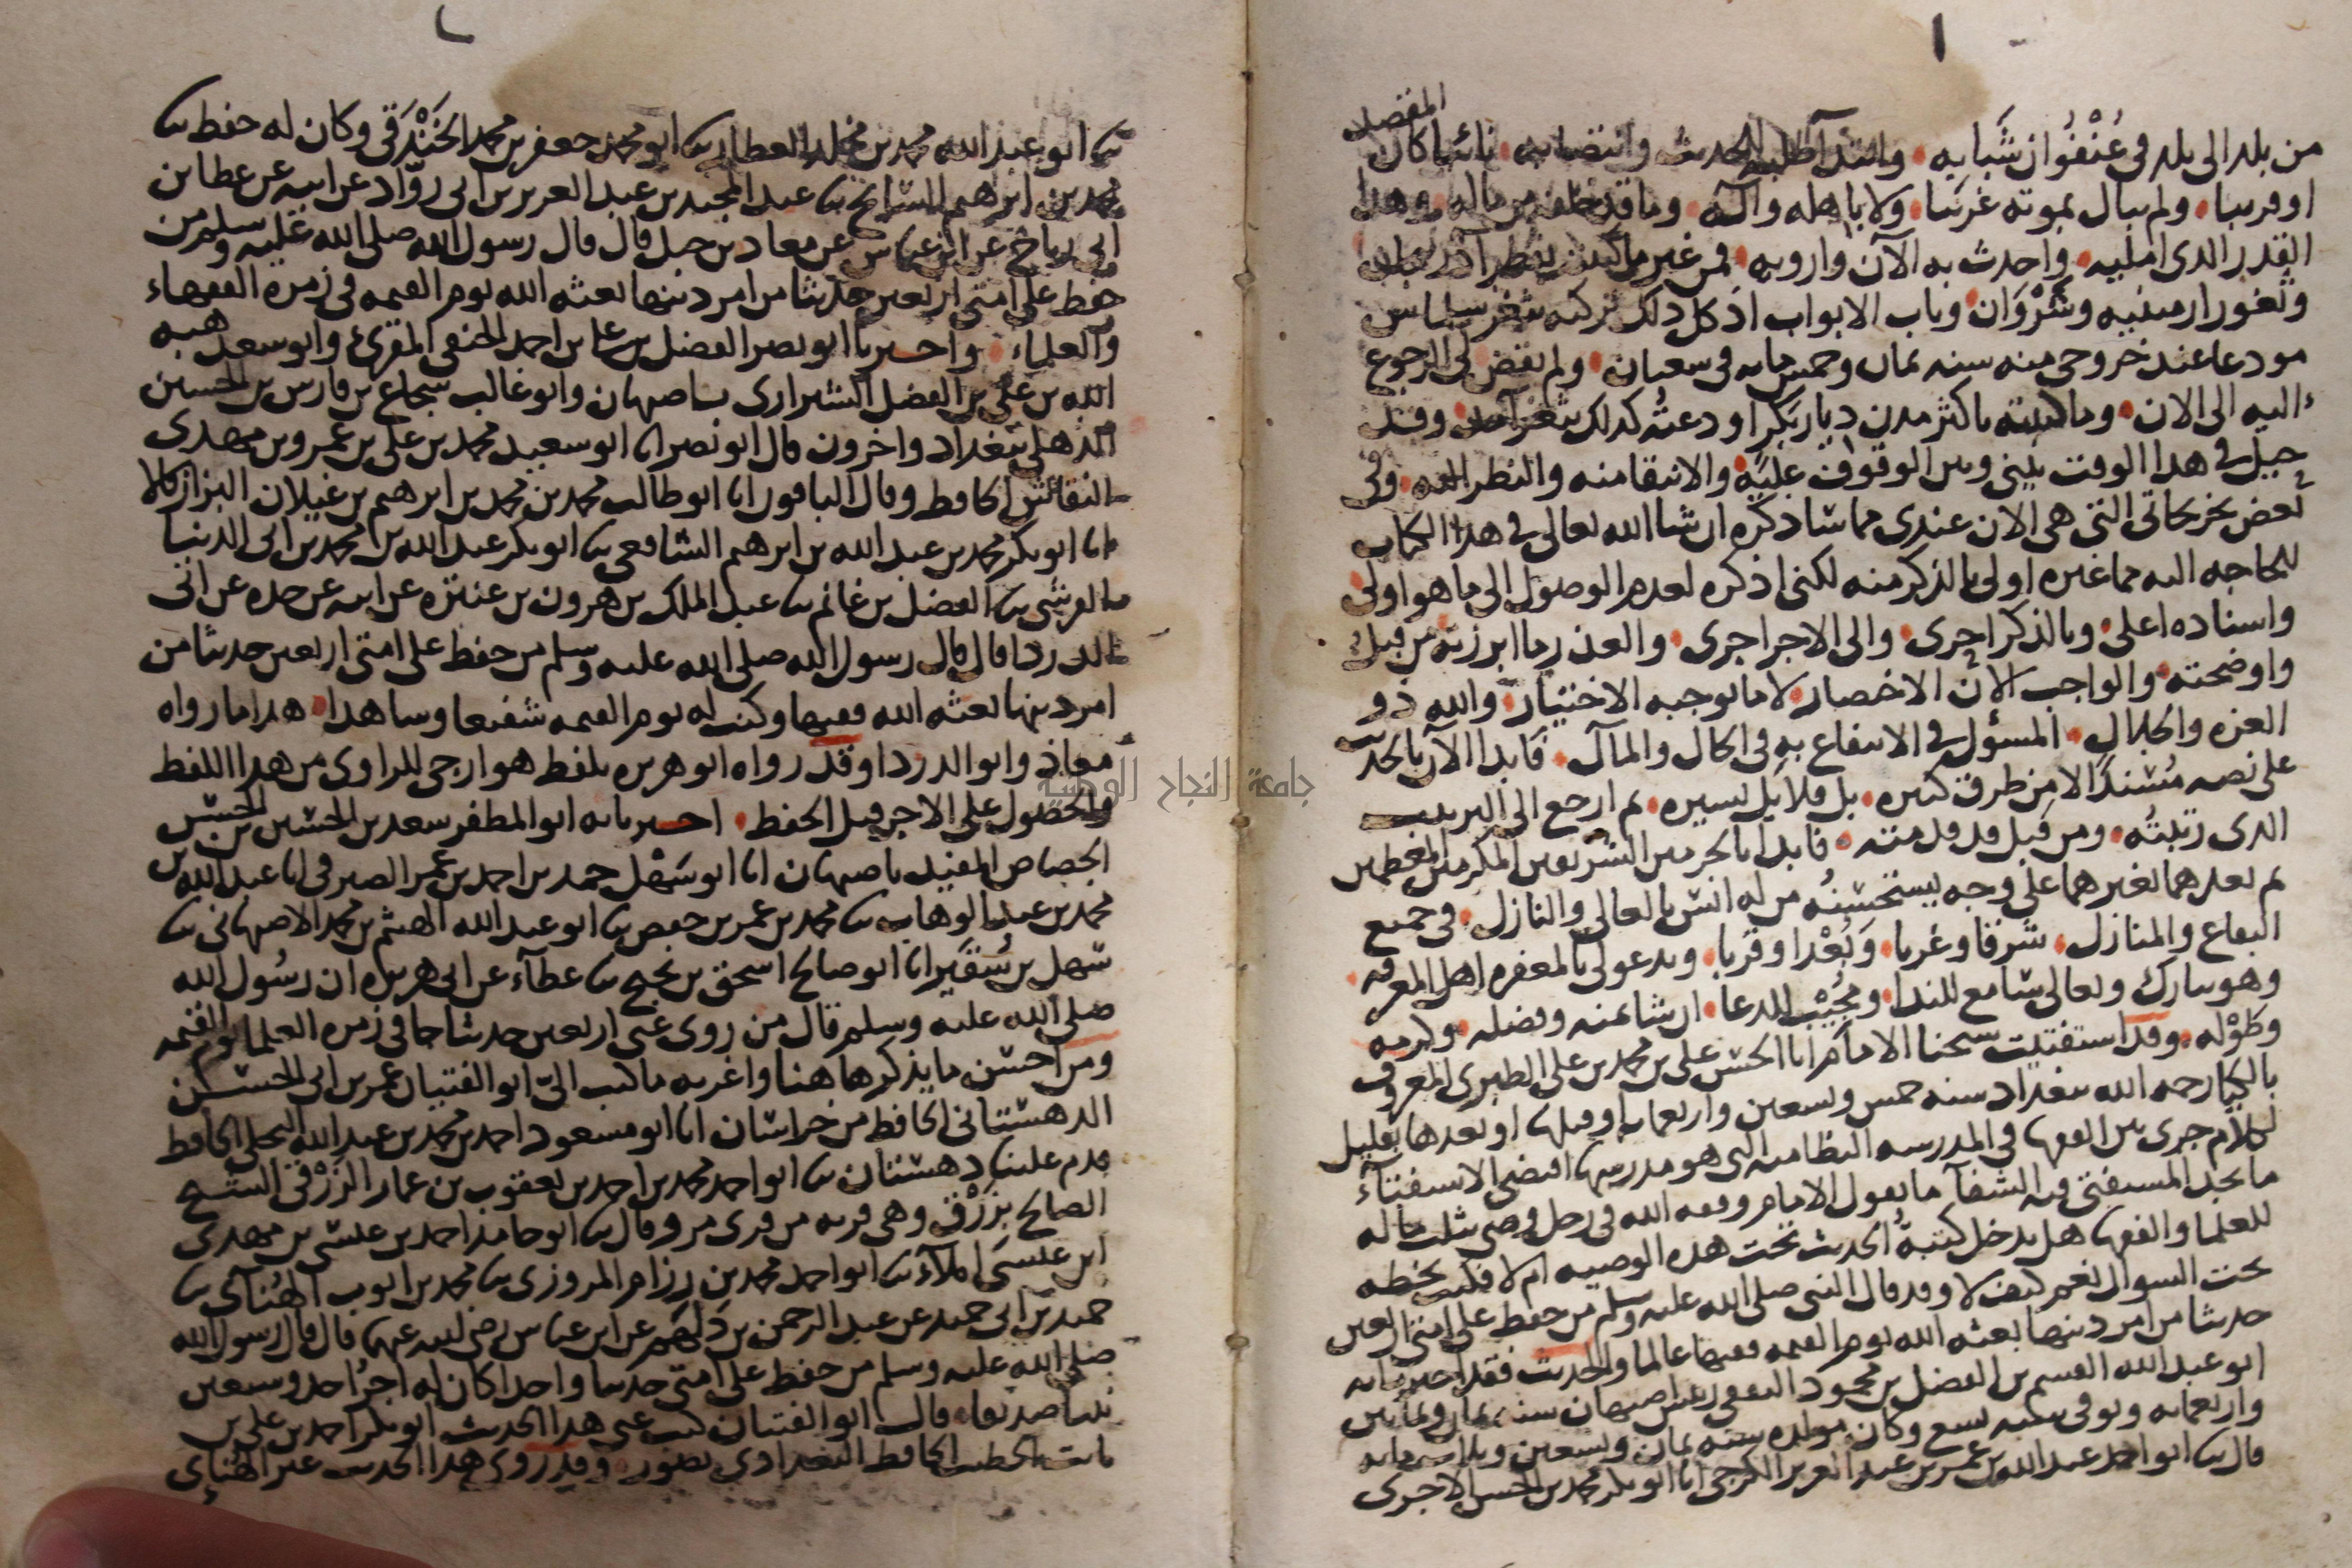 ١
من بلد الى بلد فى عُنْفُوَان شَبَابِهِ وابتدآ طلبه الحديث وانتصابه نائيا كان المقصد
او قريبا ولم يبال بموته غريبا ولا باهله وآله وما قد خلفه من ماله وهذا
القدر الذى امليه واحدث به الآن وارويه فمن غير ما كتبته بقطر آذربيجان
وثغور ارمينيه وشَرْوَان وباب الابواب اذ كل ذلك تركته بثغر سلماس
مودعا عند خروجى منه سنه ثمان وخمس مايه فى شعبان ولم يقض لى الرجوع
اليه الى الان وما كتبته باكثر مدن ديار بَكر اودعته كذلك بثغر آمد وقد
حيل فى هذا الوقت بينى وبين الوقوف عليه والانتقا منه والنظر اليه وفى
بعض تخريجاتى التى هى الان عندى مما شاد ذكره ان شا الله تعالى فى هذا الكتاب
للحاجه اليه مما غيره اولى بالذكر منه لكنى اذكره لعدم الوصول الى ما هو اولى
واسناده اعلى وبالذكر احرى والى الاجر اجرى والعذر ما ابرزته من قبل
واوضحته والواجب الآن الاختصار لا ما توجبه الاختيار والله ذو
العزه والجلال المسؤل فى الانتفاع به فى الحال والمآل فابدا الآن بالحديث
على نصه مُسْنَدًا لا من طرق كثيره بل قلايل يسيره ثم ارجع الى الترتيب
الذى رتبتُه ومن قبل قد قدمته فابدا بالحرمين الشريفين المكرمين المعظمين
ثم بعدهما بغيرهما على وجه يستحسنُه من له انس بالعالى والنازل فى جميع
البقاع والمنازل شرقا وغربا وَبُعْدا وقربا ويدعو لى بالمغفره اهل المعرفه
وهو تبارك وتعالى سامع للندا ومُجُيْب للدعا ان شا بمنه وفضله وكرمه
وطَوْله وقد استفتيت شيخنا الامام ابا الحسن على بن محمد بن على الطبرى المعروف
بالكيا رحمه الله ببغداد سنه خمس وتسعين واربعمايه او قبلها او بعدها بقليل
لكلام جرى بين الفقها فى المدرسه النظاميه التى هو مدرسها اقتضى الاستفتآء
ما يجد المستفتى فيه الشفآ ما يقول الامام وفقه الله فى رجل وصى بثلث ماله
للعلما والفقها هل يدخل كتبةُ الحديث تحت هذه الوصيه ام لا فكتب بخطه
تحت السوال نعم كيف لا وقد قال النبى صلى الله عليه وسلم من حفظ على امتى اربعين
حديثا من امر دينها بعثه الله يوم القيمه فقيها عالما والحديث فقد اخبرنا به
ابو عبد الله القسم بن الفضل بن محمود الثقفى رئيس اصبهان سنه ثمان وثمانين
واربعمايه وتوفى سنه تسع وكان مولده سنه ثمان وتسعين وثلث مايه
قال ثنا ابو احمد عبد الله بن عمر بن عبد العزيز الكرجى انا ابو بكر محمد بن الحسن الاجرى
٢
ثنا ابو عبد الله محمد بن مخلد العطار ثنا ابو محمد جعفر بن محمد الخَنْدَقى وكان له حفظ ثنا
محمد بن ابرهيم السائح ثنا عبد المجيد بن عبد العزيز بن ابى روّاد عن ابيه عن عطا بن
ابى رباح عن ابن عباس عن معاذ بن جبل قال قال رسول الله صلى الله عليه وسلم من
حفظ على امتى اربعين حديثا من امر دينها بعثه الله يوم القيمه فى زمره الفقهاء
والعلماء واخبرنا ابو نصر الفضل بن على بن احمد الحنفى المقرئ وابو سعد هبه
الله بن على بن الفضل الشيرازى باصبهان وابو غالب شجاع بن فارس بن الحسين
الذهلى ببغداد واخرون قال ابو نصر انا ابو سعيد محمد بن على بن عمرو بن مهدى
النقاش الحافظ وقال الباقون انا ابو طالب محمد بن محمد بن ابرهيم بن غيلان البزاز قالا
انا ابو بكر محمد بن عبد الله بن ابرهيم الشافعى ثنا ابو بكر عبد الله بن محمد بن ابى الدنيا
القرشى ثنا الفضل بن غانم ثنا عبد الملك بن هرون بن عنتره عن ابيه عن جده عن ابى
الدردا قال قال رسول الله صلى الله عليه وسلم من حفظ على امتى اربعين حديثا من
امر دينها بعثه الله فقيها وكنت له يوم القيمه شفيعا وشاهدا هذا ما رواه
معاذ وابو الدردا وقد رواه ابو هريره بلفظ هو ارجى للراوى من هذا اللفظ
والحصول على الاجر قبل الحفظ اخبرنا به ابو المظفر سعد بن الحسين بن الحسن
الجصاص المفيد باصبهان انا ابو سَهْل حمد بن احمد بن عمر الصيرفى انا عبد الله بن
محمد بن عبد الوهاب ثنا محمد بن عمر بن حفص ثنا ابو عبد الله الهيثم بن محمد الاصبهانى ثنا
سهل بن سُقَير انا ابو صالح اسحق بن نجيح ثنا عطآء عن ابى هريره ان رسُول الله
صلى الله عليه وسلم قال من روى عنى اربعين حديثا جا فى زمره العلما يوم القيمه
ومن احسن ما يذكر هاهنا واغربه ما كتب الىّ ابو الفتيان عمر بن ابى الحسن
الدهستانى الحافظ من خراسان انا ابو مسعود احمد بن محمد بن عبد الله البجلى الحافظ
قدم علينا دهستان ثنا ابو احمد محمد بن احمد بن يعقوب بن عمار الزَرْقى الشيخ
الصالح بزَرْق وهى قريه من قرى مرو قال ثنا ابو حامد احمد بن عيسى بن مهدى
ابن عيسَى املآءً ثنا ابو احمد محمد بن رزام المروزى ثنا محمد بن ايوب الهُنآى ثنا
حميد بن ابى حميد عن عبد الرحمن بن دَلْهَم عن ابن عباس رضى الله عنهما قال قال رسول الله
صلى الله عليه وسلم من حفظ على امتى حديثا واحدا كان له اجرُ احد وسبعين
نبيا صديقا قال ابو الفتيان كتب عنى هذا الحديث ابو بكر احمد بن على بن
ثابت الخطيب الحافظ البغدادى بصور وقد روى هذا الحديث عن الهُناىِ
جامعة النجاح الوطنية